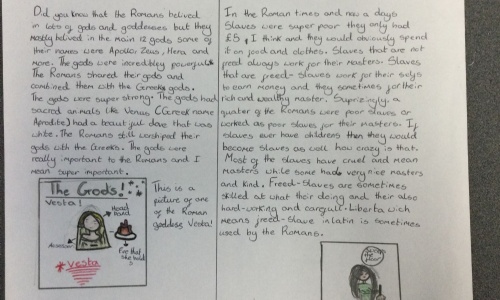 Did you know that the Romans belived
in lots of gods and goddesses but they
mostly belived in the main 12 gods some of
their names were Apollo, Zeus, Hera, and
more. The gods were incredibley powerful.
The Romans shared their gods and
combined them with the Greeks gods.
The gods were super strong. The gods had
sacred animals like Venus (Greek name
Aprodite) had a beautiful dove that was
white. The Romans still worshiped their
gods with the Greeks. The gods were
really important to the Romans and I
mean super important.
The Gods!
Vesta!
Head
Band
Fire that
she holds
Vesta
This is a
picture of one
of the Roman
goddess, Vesta!
In the Roman times and now a days
Slaves were super poor they only had
£5 I think and they would obviously spend
it on food and clothes. Slaves that are not
freed always work for their masters. Slaves
that are freed-slaves work for their selfs
to earn money and they sometimes for their
rich and wealthy master. Suprizingly, a
quater of the Romans were poor slaves or
worked as poor slaves for their masters. If
slaves ever have children then they would
become slaves as well how crazy is that.
Most of the slaves have cruel and mean
masters while some had very nice masters
and kind. Freed-slaves are sometimes
skilled at what their doing and their also
hard-working and carefull. Liberta wich
means freed-slave in latin is sometimes
used by the Romans.